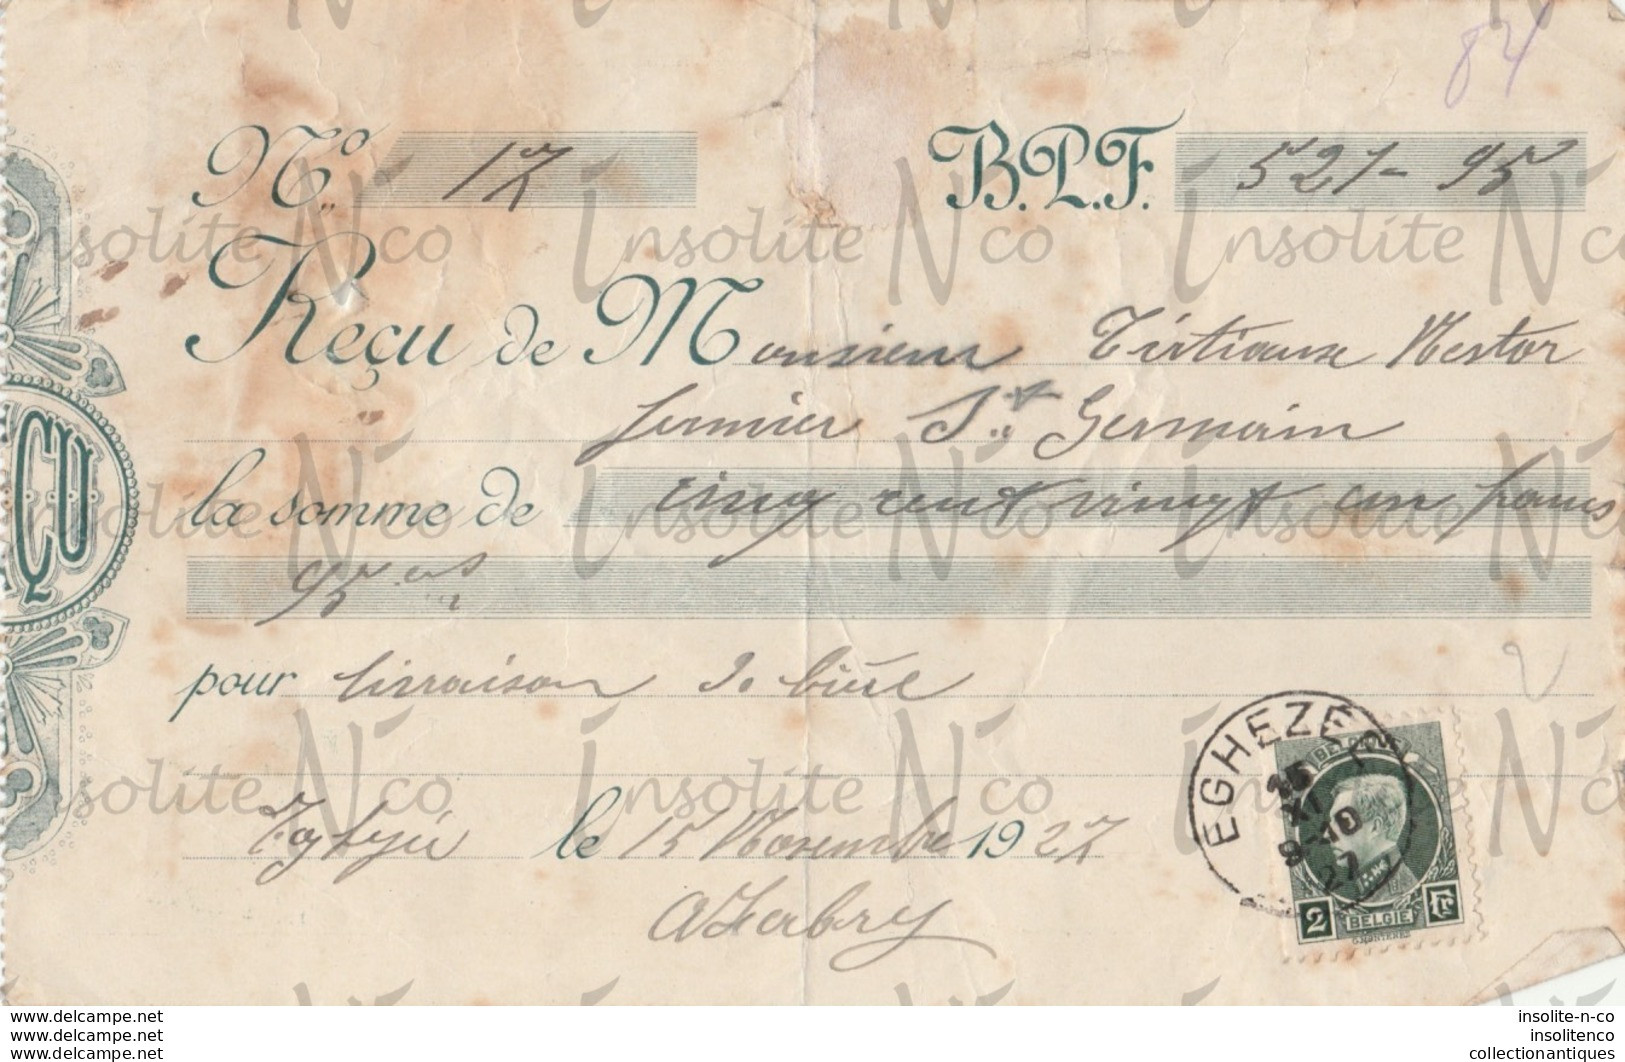 84
No 17 B.P.F. 521-95
Reçu de Monsieur Tirtiaux Nestor
fermier St Germain
la somme de cinq cent vingt un francs
95 cms
pour livraison de bière
2
le 15 Novembre 1927
EGHEZEE
15
XI
9-10
27
BELGIE
2 Fr
ÇU
insolite N'co insolite N'co insolite N'co
www.delcampe.net
www.delcampe.net
www.delcampe.net
insolite-n-co
insolitenco
collectionantiques